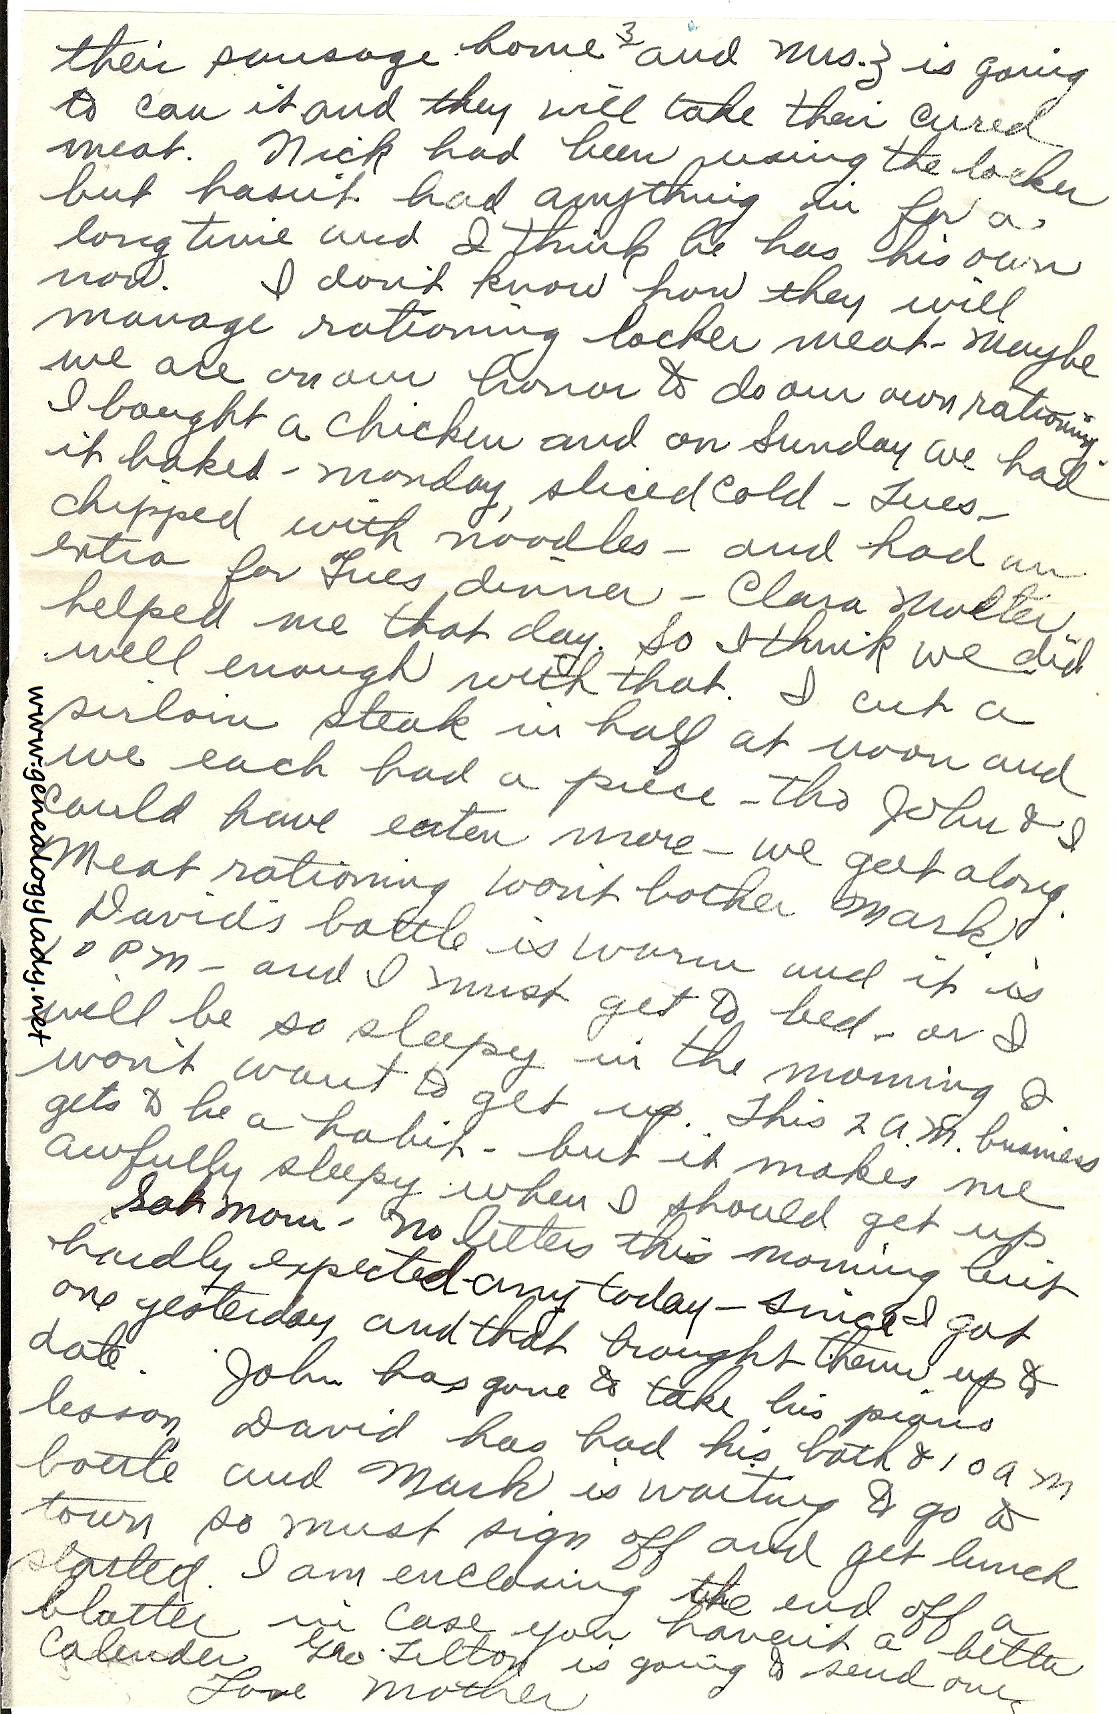 their sausage home and Mrs. 3 is going
to can it and they will take their cured
meat. Nick had been using the locker
but hasn't had anything in for a
long time and I think he has his own
now. I don't know how they will
manage rationing locker meat - Maybe
we are on our honor to do our own rationing
I bought a chicken and on Sunday we had
it baked - Monday, sliced cold - Tues -
chipped with noodles - and had an
extra for Tues dinner - Clara Molter
helped me that day. So I think we did
well enough with that. I cut a
sirloin steak in half at noon and
we each had a piece - tho John & I
could have eaten more - we get along.
Meat rationing won't bother Mark
David's bottle is warm and it is
10 PM - and I must get to bed - or I
will be so sleepy in the morning I
won't want to get up. This 2 A.M. business
gets to be a habit - but it makes me
awfully sleepy when I should get up
Sat morn - No letters this morning but
hardly expected any today - since I got
one yesterday and that brought them up to
date. John has gone to take his piano
lesson David has had his bath & 10 AM
bottle and Mark is waiting to go to
town so must sign off and get lunch
started. I am enclosing the end off a
blotter in case you haven't a better
calender Geo. Tilton is going to send one
Love Mother
www.genealogylady.net